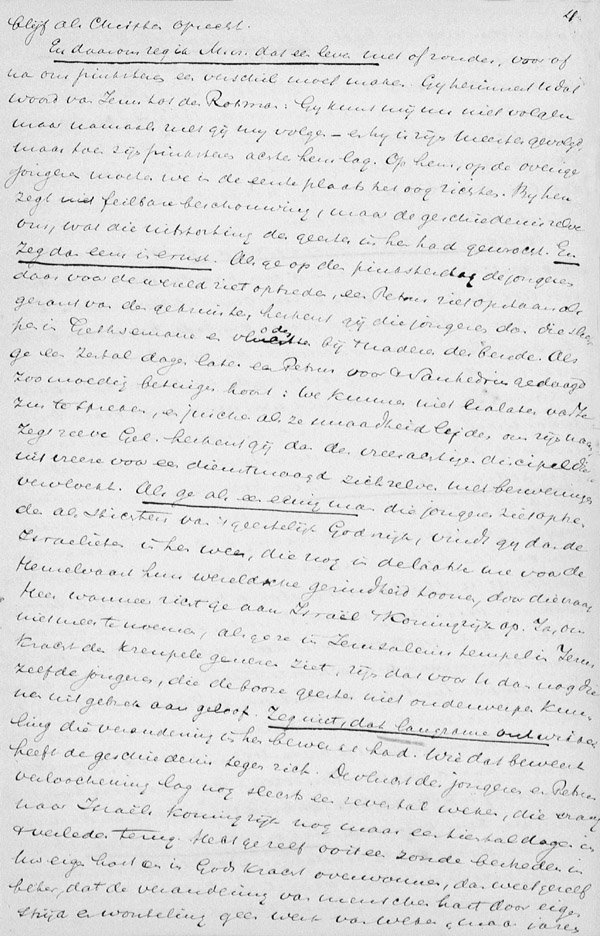 4.
blijf als Christen oprecht.
En daarom zeg ik M.vr. dat een leven met of zonder, voor of
na ons pinksteren een verschil moet maken. Gij herinnert U dat
woord van Jezus tot de Rotsman: Gij kunt mij nu niet volgen
maar namaals zult gij mij volgen – en hij is zijn Meester gevolgd,
maar toen zijn pinksteren achter hem lag. Op hem, op de overige
jongeren moeten we in de eerste plaats het oog richten. Bij hen
zegt niet feilbare beschouwing, maar de geschiedenis zelve
ons, wat die uitstorting des geestes in hen had gewrocht. En
zeg dan eens in ernst. Als ge op den pinksterdag de jongeren
daar voor de wereld ziet optreden, een Petrus ziet opstaan als
gerant van de gebroeders, herkent gij die jongeren dan die slie
pen in Gethsemane en vloden bij 't naderen der bende. Als
ge een zestal dagen later een Petrus voor 't Sanhedrin gedaagd
zoo moedig betuigen hoort: We kunnen niet nalaten van Je
zus te spreken, en juichen als ze smaadheid lijden om zijn naam
Zegt zelve Gel. herkent gij dan de vreesachtige discipel die
uit vreeze voor een dienstmaagd zichzelven met bezweringen
vervloekt. Als ge als een eenig man die jongeren ziet optre,
den als stichters van 't geestelijk Godsrijk, vindt gij dan de
Israelieten in hen weer, die nog in de laatste ure voor de
Hemelvaart hun wereldsche gezindheid toonen, door die vraag
Heer wanneer richt ge aan Israël 't Koningrijk op. Ja, om
niet meer te noemen, als ge ze in Jeruzalems tempel in Jezus
kracht de kreupele genezen ziet, zijn dat voor U dan nog die
zelfde jongeren, die de booze geesten niet onderwerpen kun-
nen uit gebrek aan geloof. Zeg niet, dat langzame ontwikke
ling die verandering in hen bewerkt had. Wie dat beweert
heeft de geschiedenis tegen zich. De vlucht der jongeren en Petrus
verloochening lag nog slechts een zevental weken, die vraag
naar Israëls Koningrijk nog maar een tiental dagen in
't verleden terug. Hebt ge zelf ooit een zonde bestreden in
Uw eigen hart en in Gods kracht overwonnen, dan weet ge zelf
beter, dat de verandering van menschen hart door eigen
strijd en worsteling geen werk van weken, maar jaren